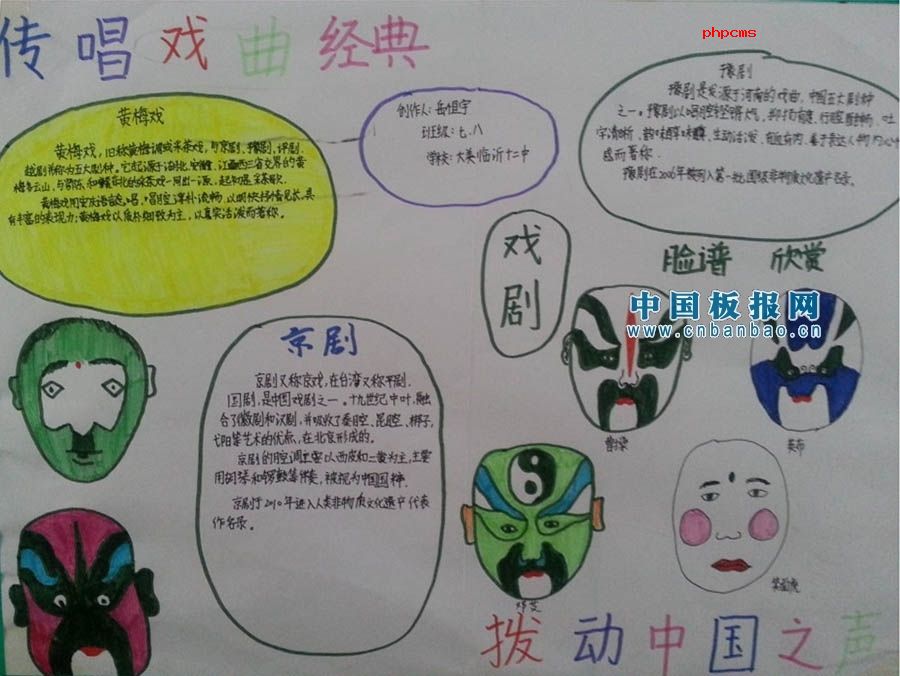 传唱戏曲经典
phpcms
黄梅戏
黄梅戏，旧称黄梅调或采茶戏，与京剧、豫剧、评剧、
越剧并称为五大剧种。它起源于湖北、安徽、江西三省交界的黄
梅多云山，与鄂东和赣东北的采茶戏一同出一源，
黄梅戏用安庆语言念唱，唱腔淳朴流畅，以明快抒情见长，具
有丰富的表现力；黄梅戏以质朴细致为主，以真实活泼而著称。
创作人：岳恒宇
班级：七、八
学校：大美临沂十二中
豫剧
豫剧是发源于河南的戏曲，中国五大剧种
之一。豫剧以唱腔铿锵大气、抑扬有度、行腔酣畅、吐
字清晰、韵味醇味醇、生动活泼、有血有肉、善于表达人物内心
感而著称
豫剧在2006年被列入第一批国家非物质文化遗产名录。
戏
剧
脸谱 欣赏
中国板报网
www.cnbanbao.cn
京剧
京剧又称京戏，在台湾又称平剧、
国剧，是中国戏剧之一。十九世纪中叶，融
合了徽剧和汉剧，并吸收了秦腔、昆腔、梆子、
弋阳等艺术的优点，在北京形成的。
京剧的腔调主要以西皮和二黄为主，主要
用胡琴和锣鼓等伴奏，被视为中国国粹
京剧于2010年进入人类非物质文化遗产代表
作名录。
曹操
英布
邓芝
拨动中国之声